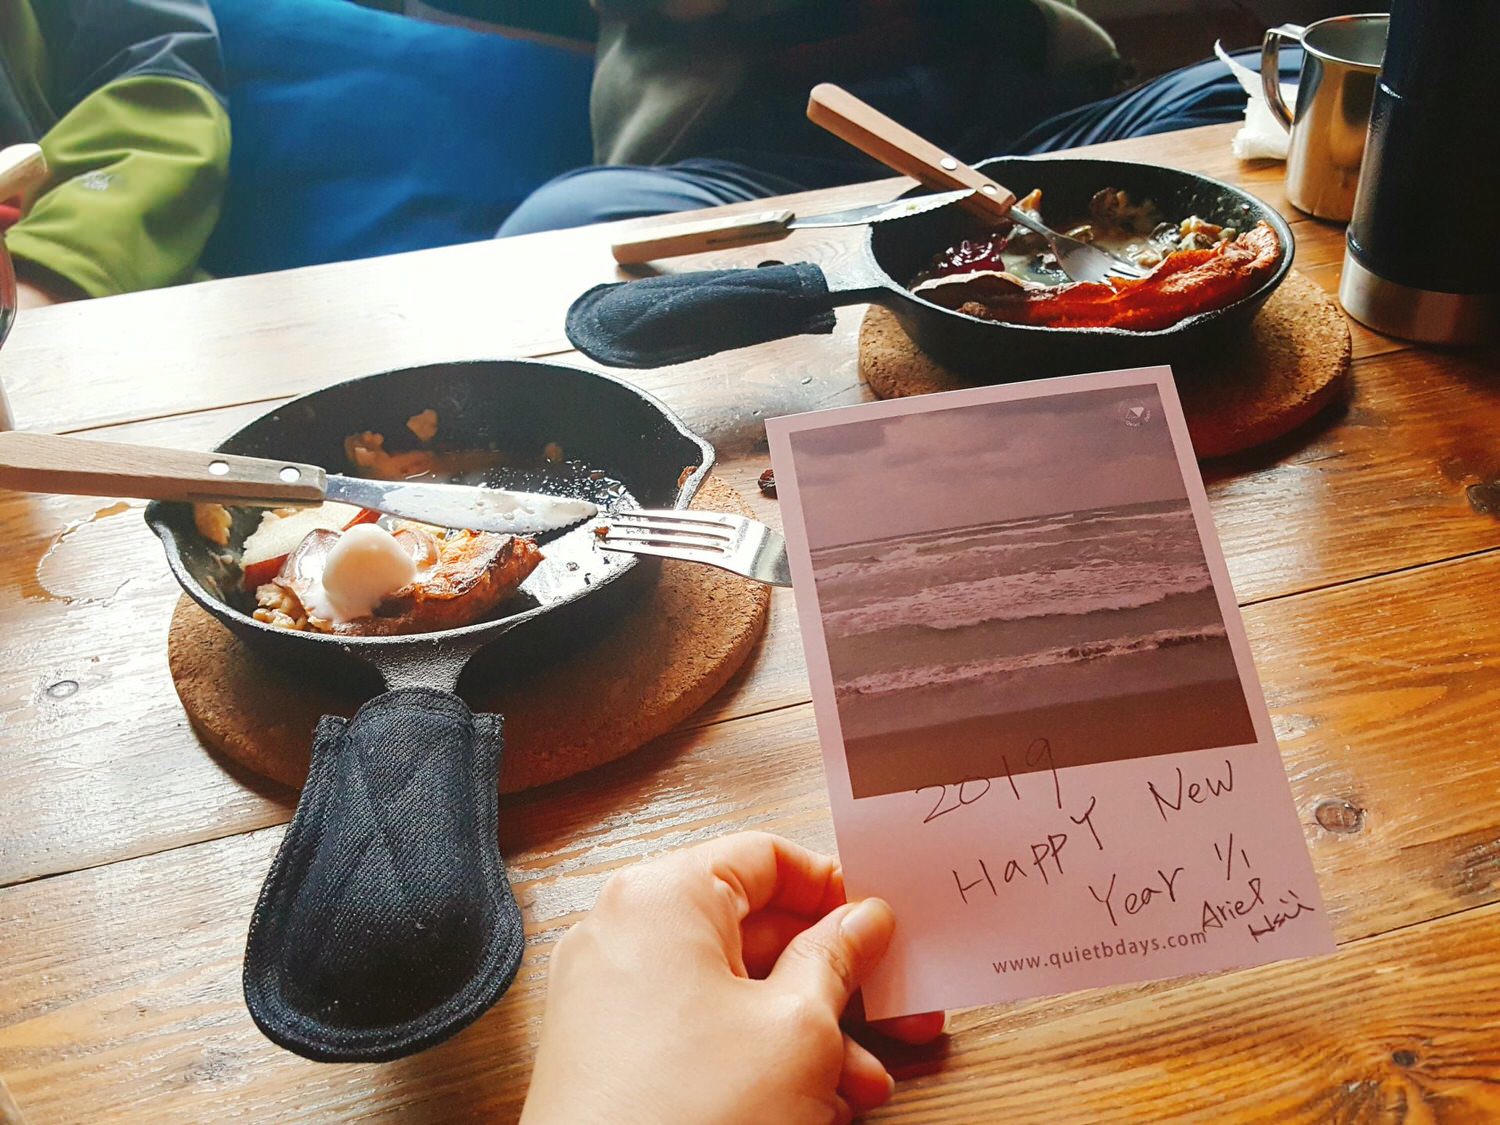 2019
HAPPY New
Year 1/1
Ariel
Hsü
www.quietbdays.com